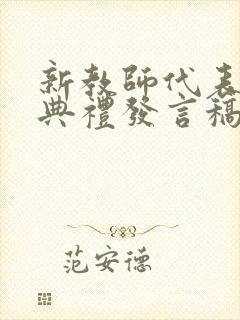 新教師代表
典禮發言稿
范安德